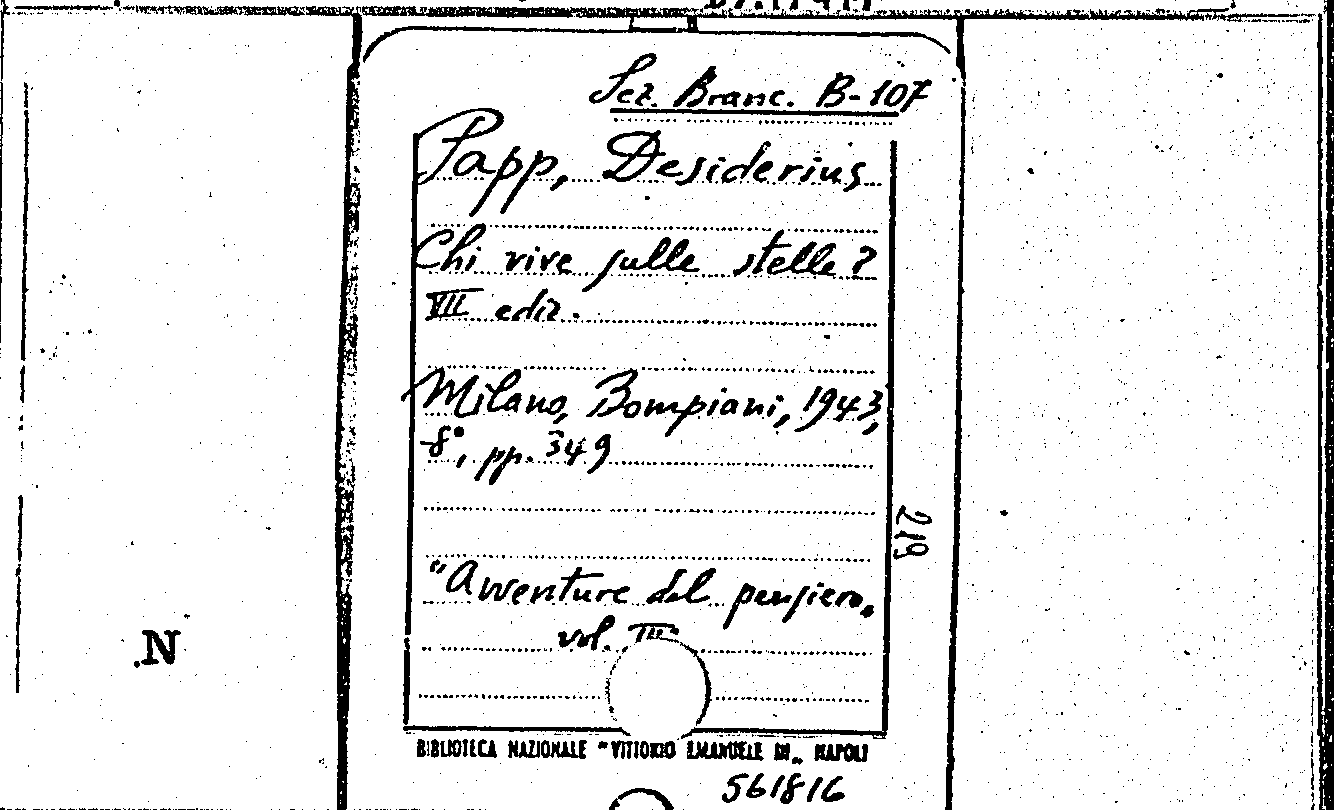 Sez. Branc. B-107
Papp, Desiderius
Chi vive sulle stelle?
VII ediz.
Milano, Bompiani, 1943,
8°, pp. 349
219
"Avventure del pensiero„
vol. III
N
BIBLIOTECA NAZIONALE "VITTORIO EMANUELE III„ NAPOLI
561816